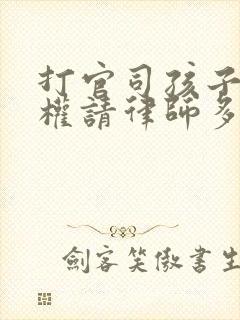 打官司孩子
權請律師多
劍客笑傲書生